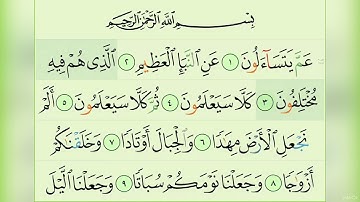 بِسْمِ ٱللَّهِ ٱلرَّحْمَٰنِ ٱلرَّحِيمِ
عَمَّ يَتَسَآءَلُونَ ١ عَنِ ٱلنَّبَإِ ٱلْعَظِيمِ ٢ ٱلَّذِى هُمْ فِيهِ
مُخْتَلِفُونَ ٣ كَلَّا سَيَعْلَمُونَ ٤ ثُمَّ كَلَّا سَيَعْلَمُونَ ٥ أَلَمْ
نَجْعَلِ ٱلْأَرْضَ مِهَٰدًا ٦ وَٱلْجِبَالَ أَوْتَادًا ٧ وَخَلَقْنَٰكُمْ
أَزْوَٰجًا ٨ وَجَعَلْنَا نَوْمَكُمْ سُبَاتًا ٩ وَجَعَلْنَا ٱلَّيْلَ